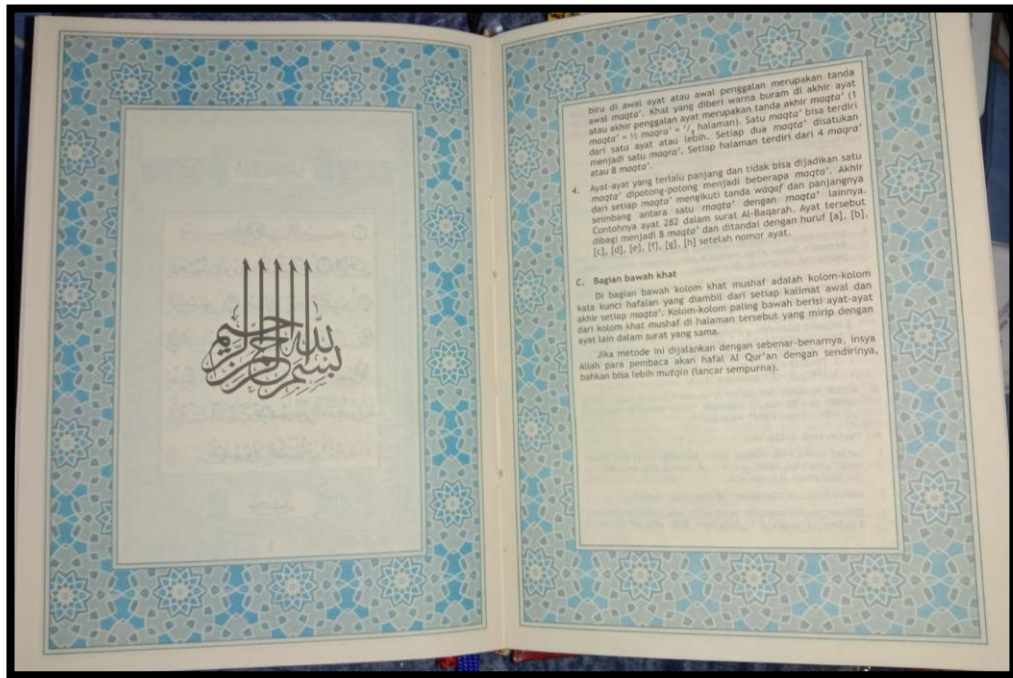 بسم الله الرحمن الرحيم
biru di awal ayat atau awal penggalan merupakan tanda
awal maqta'. Khat yang diberi warna buram di akhir ayat
atau akhir penggalan ayat merupakan tanda akhir maqta' (1
maqta' = ½ maqra' = ¹/₈ halaman). Satu maqta' bisa terdiri
dari satu ayat atau lebih. Setiap dua maqta' disatukan
menjadi satu maqra'. Setiap halaman terdiri dari 4 maqra'
atau 8 maqta'.
4. Ayat-ayat yang terlalu panjang dan tidak bisa dijadikan satu
maqta' dipotong-potong menjadi beberapa maqta'. Akhir
dari setiap maqta' mengikuti tanda waqaf dan panjangnya
seimbang antara satu maqta' dengan maqta' lainnya.
Contohnya ayat 282 dalam surat Al-Baqarah. Ayat tersebut
dibagi menjadi 8 maqta' dan ditandai dengan huruf [a], [b],
[c], [d], [e], [f], [g], [h] setelah nomor ayat.
C. Bagian bawah khat
Di bagian bawah kolom khat mushaf adalah kolom-kolom
kata kunci hafalan yang diambil dari setiap kalimat awal dan
akhir setiap maqta'. Kolom-kolom paling bawah berisi ayat-ayat
dari kolom khat mushaf di halaman tersebut yang mirip dengan
ayat lain dalam surat yang sama.
Jika metode ini dijalankan dengan sebenar-benarnya, insya
Allah para pembaca akan hafal Al Qur'an dengan sendirinya,
bahkan bisa lebih mutqin (lancar sempurna).